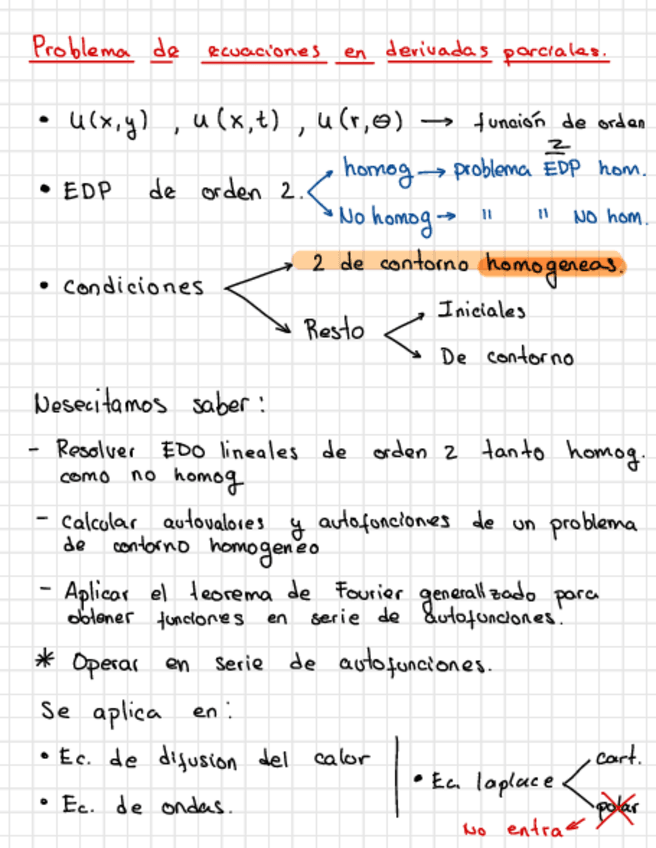 Problema de ecuaciones en derivadas parciales.
• u(x,y) , u(x,t) , u(r,θ) → función de orden 2
• EDP de orden 2.
homog → problema EDP hom.
No homog → " " NO hom.
• condiciones
2 de contorno homogeneas.
Resto
Iniciales
De contorno
Nesecitamos saber:
- Resolver EDO lineales de orden 2 tanto homog.
como no homog
- Calcular autovalores y autofunciones de un problema
de contorno homogeneo
- Aplicar el teorema de Fourier generalizado para
obtener funciones en serie de autofunciones.
* Operar en serie de autofunciones.
Se aplica en:
• Ec. de difusion del calor
• Ec. de ondas.
• Ec. laplace
cart.
polar
No entra